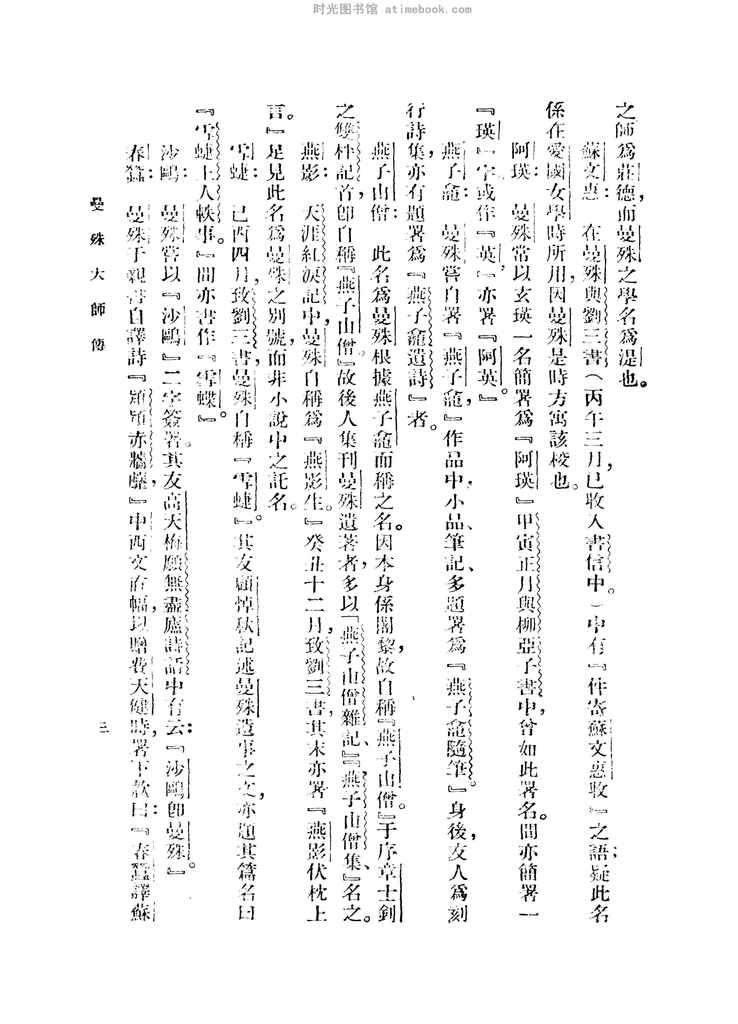 时光图书馆 atimebook.com
之師爲莊德，而曼殊之學名爲湜也。
蘇文惠： 在曼殊與劉三書（丙午三月，已收入書信中。）中有『件寄蘇文惠收』之語；疑此名
係在愛國女學時所用，因曼殊是時方寓該校也。
阿瑛： 曼殊常以玄瑛一名簡署爲『阿瑛』甲寅正月與柳亞子書中，曾如此署名。間亦簡署一
『瑛』字或作『英』，亦署『阿英。』
燕子龕： 曼殊嘗自署『燕子龕，』作品中，小品、筆記、多題署爲『燕子龕隨筆。』身後，友人爲刻
行詩集，亦有題署爲『燕子龕遺詩』者。
燕子山僧： 此名爲曼殊根據燕子龕而稱之名。因本身係闍黎，故自稱『燕子山僧。』于序章士釗
之雙枰記首，卽自稱『燕子山僧。』故後人集刊曼殊遺著者，多以『燕子山僧雜記、』『燕子山僧集、』名之。
燕影： 天涯紅淚記中，曼殊自稱爲『燕影生。』癸丑十二月，致劉三書，其末亦署『燕影伏枕上
言。』足見此名爲曼殊之別號，而非小說中之託名。
雪蜨： 己酉四月，致劉三書，曼殊自稱『雪蜨』。其友顧悼秋記述曼殊遺事之文，亦題其篇名曰
『雪蜨上人軼事。』間亦書作『雪蝶』。
沙鷗： 曼殊嘗以『沙鷗』二字簽署。其友高天梅願無盡廬詩話中有云：『沙鷗卽曼殊。』
春蠶： 曼殊于親書自譯詩『熲熲赤牆靡』中西文右幅，以贈費天健時，署下款曰：『春蠶譯蘇
曼殊大師傳
三